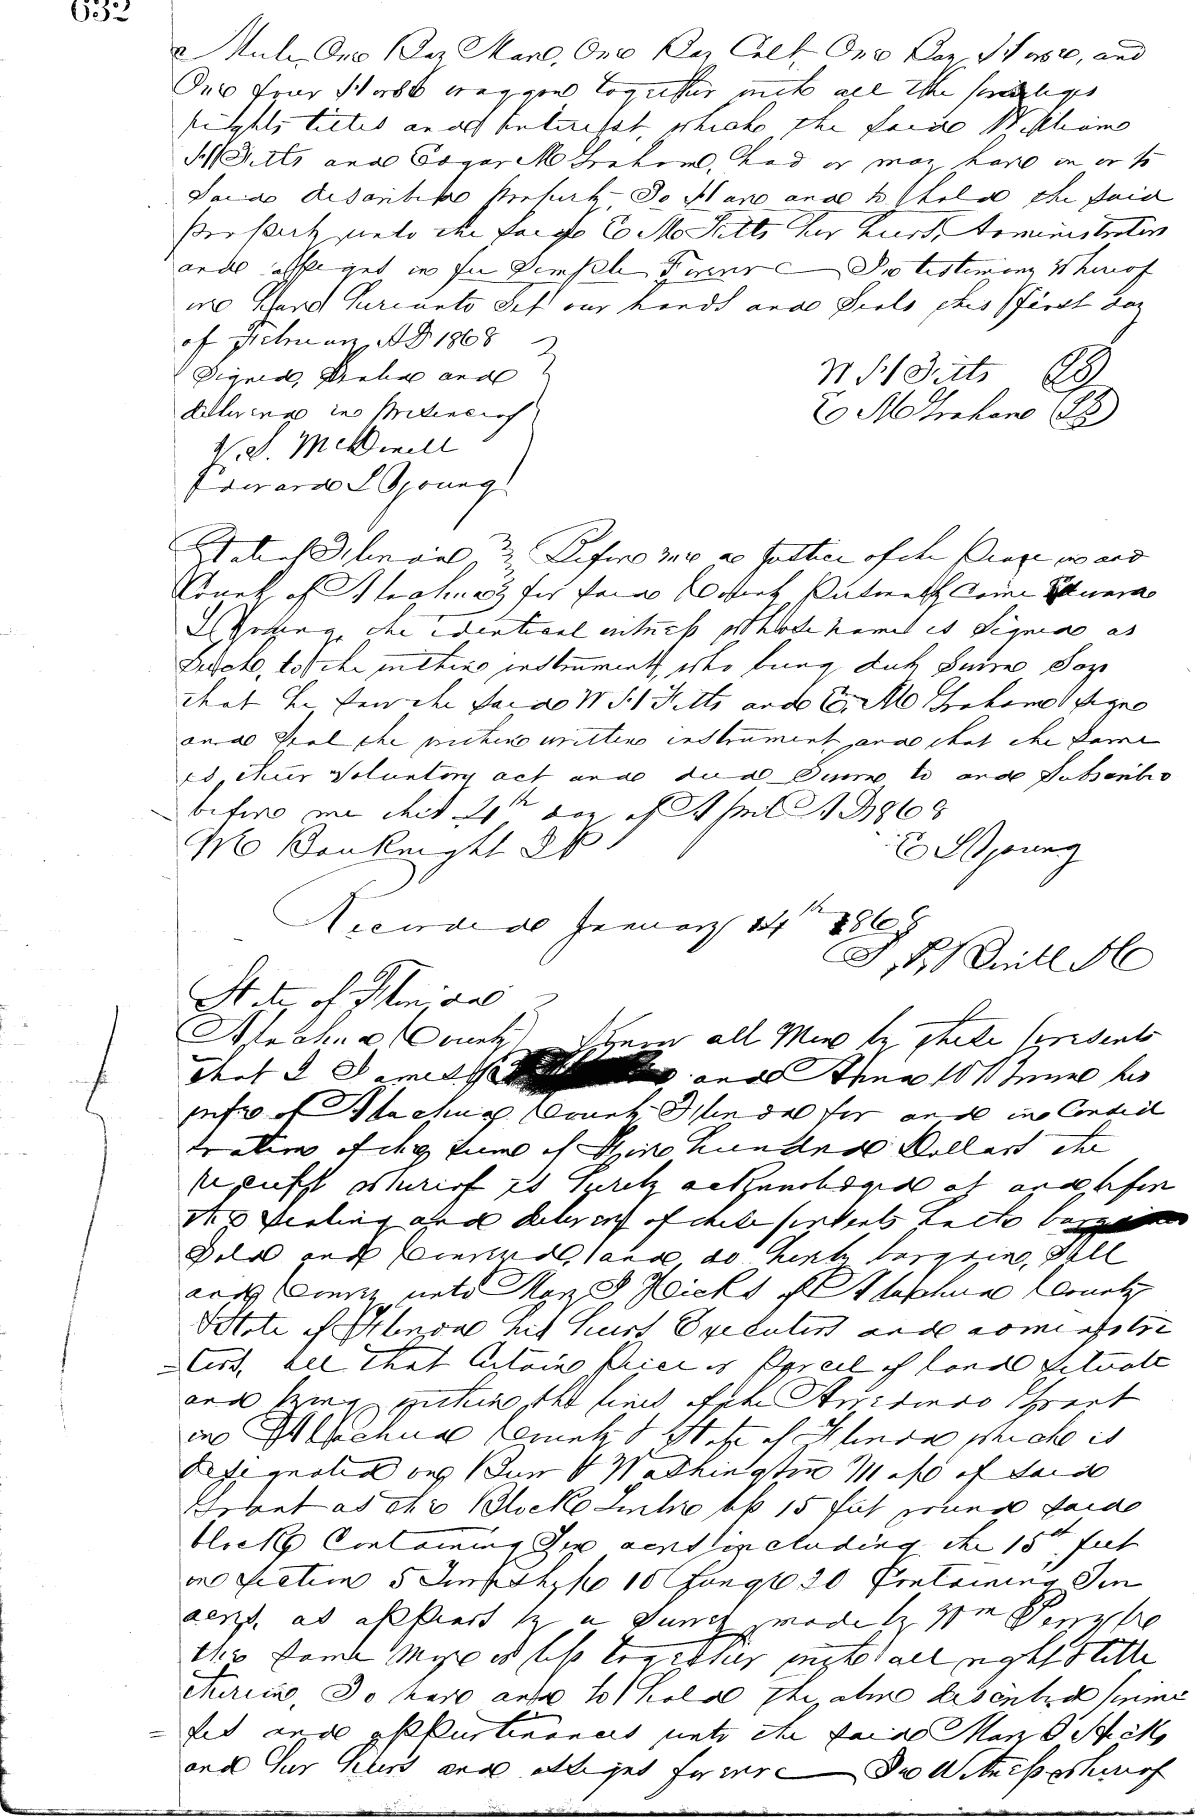 632
a Mule, One Bay Mare, One Bay Colt, One Bay Horse, and
One four Horse waggon together with all the privileges
rights titles and interest which the said William
H Fitts and Edgar M Graham, had or may have in or to
Said described property, To Have and to hold the said
property unto the said E M Fitts her heirs, Administrators
and assigns in fee Simple Forever In testimony Whereof
we have hereunto Set our hands and Seals this first day
of February AD 1868
Signed, Sealed and
delivered in presence of
W H Fitts LS
E M Graham LS
V. S. McDowell
Edward L Young
State of Florida Before me a Justice of the Peace in and
County of Alachua for said County Personally Came Edward
L Young, the identical witness whose name is Signed as
Such, to the within instrument, who being duly Sworn Says
that he saw the said W H Fitts and E. M Graham sign
and Seal the within written instrument and that the Same
is their Voluntary act and deed Sworn to and Subscribed
before me this 4th day of April AD 1868
M Bauknight JP E L Young
Recorded January 14th 1868
State of Florida
Alachua County Know all Men by these presents
that I James and Anna his
wife of Alachua County Florida for and in Consid
eration of the sum of Five hundred Dollars the
receipt whereof is hereby acknowledged at and before
the Sealing and delivery of these presents hath bargained
Sold and Conveyed, and do hereby bargain, Sell
and Convey unto Mary J Hicks of Alachua County
State of Florida his heirs Executors and administra
tors, all that Certain piece or Parcel of land situate
and lying within the lines of the Arredondo Grant
in Alachua County & State of Florida which is
designated on Burr & Washington Map of said
Grant as the Block Twelve less 15 feet round said
block Containing Ten acres including the 15 feet
in section 5 Township 10 Range 20 Containing Ten
acres, as appears by a Survey made by Wm Perry be
the same more or less together with all right & title
therein, To have and to hold the above described premi
ses and appurtenances unto the said Mary J Hicks
and her heirs and assigns forever In Witness whereof